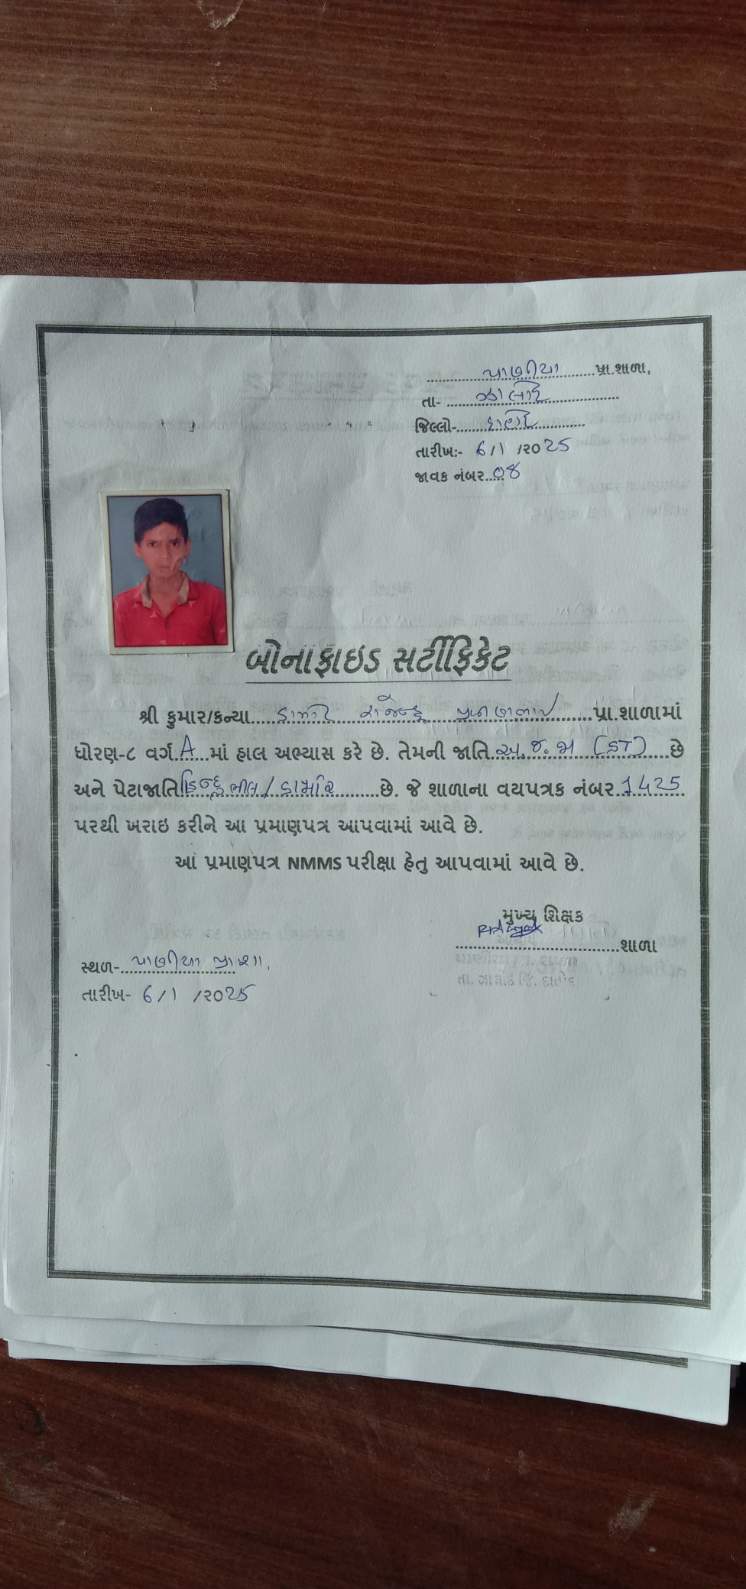 પાણીયા પ્રા.શાળા,
તા- ઝાલોદ
જિલ્લો- દાહોદ
તારીખ:- 6/1 /2025
જાવક નંબર...08
બોનાફાઇડ સર્ટીફિકેટ
શ્રી કુમાર/કન્યા... ડામોર પ્રા.શાળામાં
ધોરણ-૮ વર્ગ A માં હાલ અભ્યાસ કરે છે. તેમની જાતિ અ.જ.જા (ST) છે
અને પેટાજાતિ હિન્દુ ભીલ / ડામોર છે. જે શાળાના વયપત્રક નંબર 1425
પરથી ખરાઇ કરીને આ પ્રમાણપત્ર આપવામાં આવે છે.
આ પ્રમાણપત્ર NMMS પરીક્ષા હેતુ આપવામાં આવે છે.
મુખ્ય શિક્ષક
શાળા
સ્થળ- પાણીયા પ્રા.શા.
તારીખ- 6/1 /2025